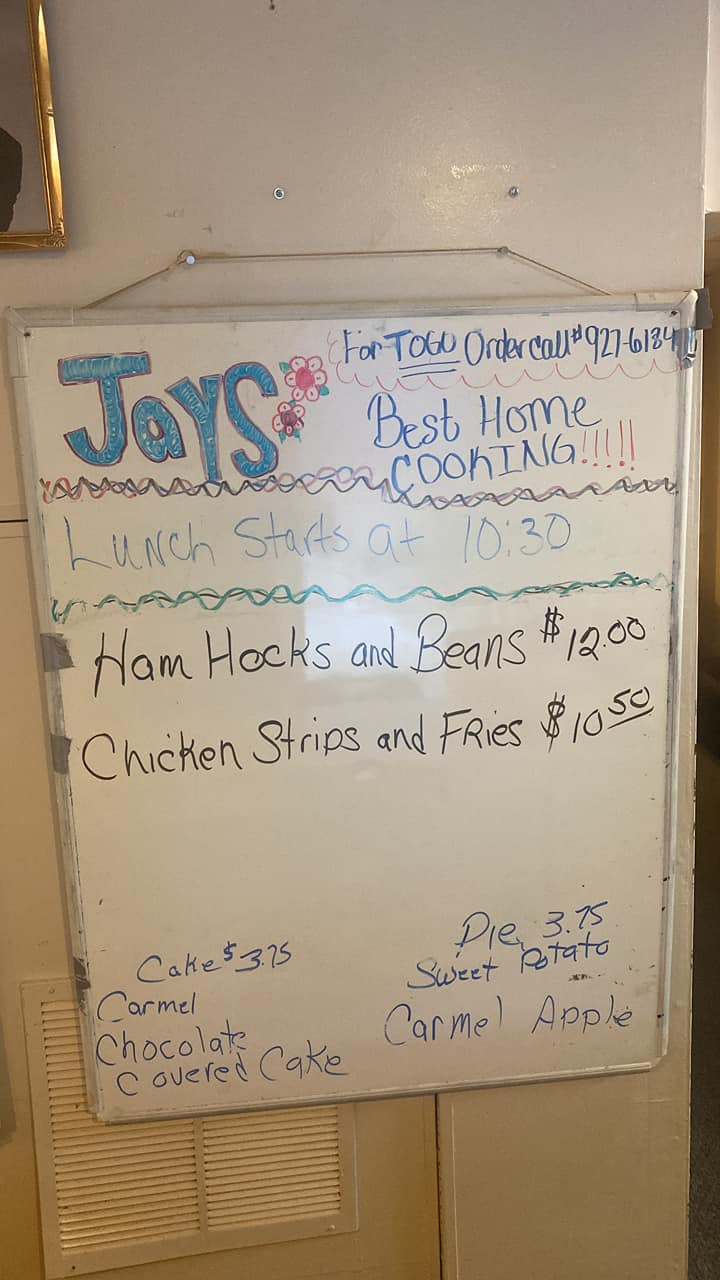 JAYS
For TOGO Order call # 927-6184
Best Home
COOKING!!!!!
Lunch Starts at 10:30
Ham Hocks and Beans $12.00
Chicken Strips and Fries $10.50
Cake $3.75
Carmel
Chocolate
Covered Cake
Pie 3.75
Sweet Potato
Carmel Apple